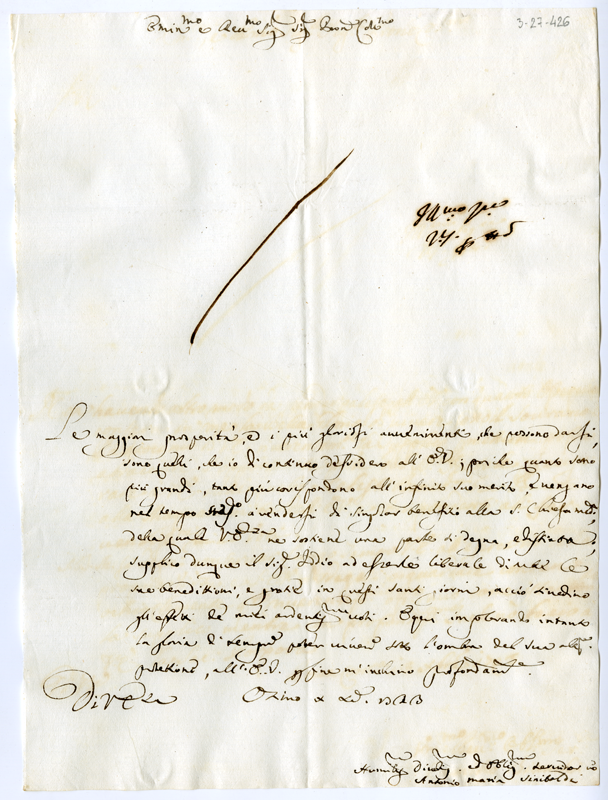 3-27-426
Emin.mo e Reu.mo Sig.r Sig.r Pron Col.mo
Le maggiori prosperità, e i più gloriosi auuenimenti, che possono darsi,
sono quelli, che io di continuo desidero all' E.V.; perche quanto sono
più grandi, tanto più corispondono all' infinito suo merito, e uengano
nel tempo a rendersi di singolar benefizio alla S. Chiesa
della quale V. Em.za ne sostiene una parte si degna, e distinta;
supplico dunque il Sig.r Iddio ad essere liberale di tutte le
sue beneditioni, e gratie in questi santi giorni, acciò
gli effetti de miei ardentis.mi uoti. E qui implorando intanto
la gloria di sempre poter uiuere sotto l'ombra del sua
protezione, all' E.V. m'inchino profondam.te.
Di V.E.za Osimo
Humilis.o Diuotis.mo ed Oblig.mo Seruidor uo
Antonio Maria Sinibaldi